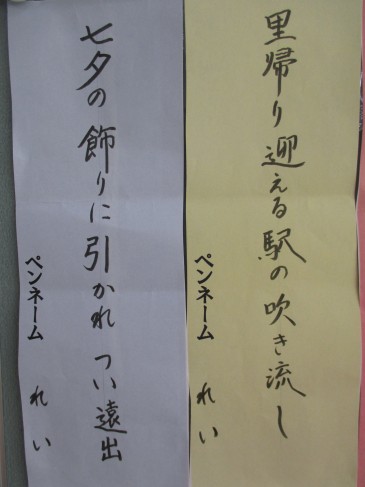 里帰り迎える駅の吹き流し
ペンネーム れい
七夕の飾りに引かれ つい遠出
ペンネーム れい